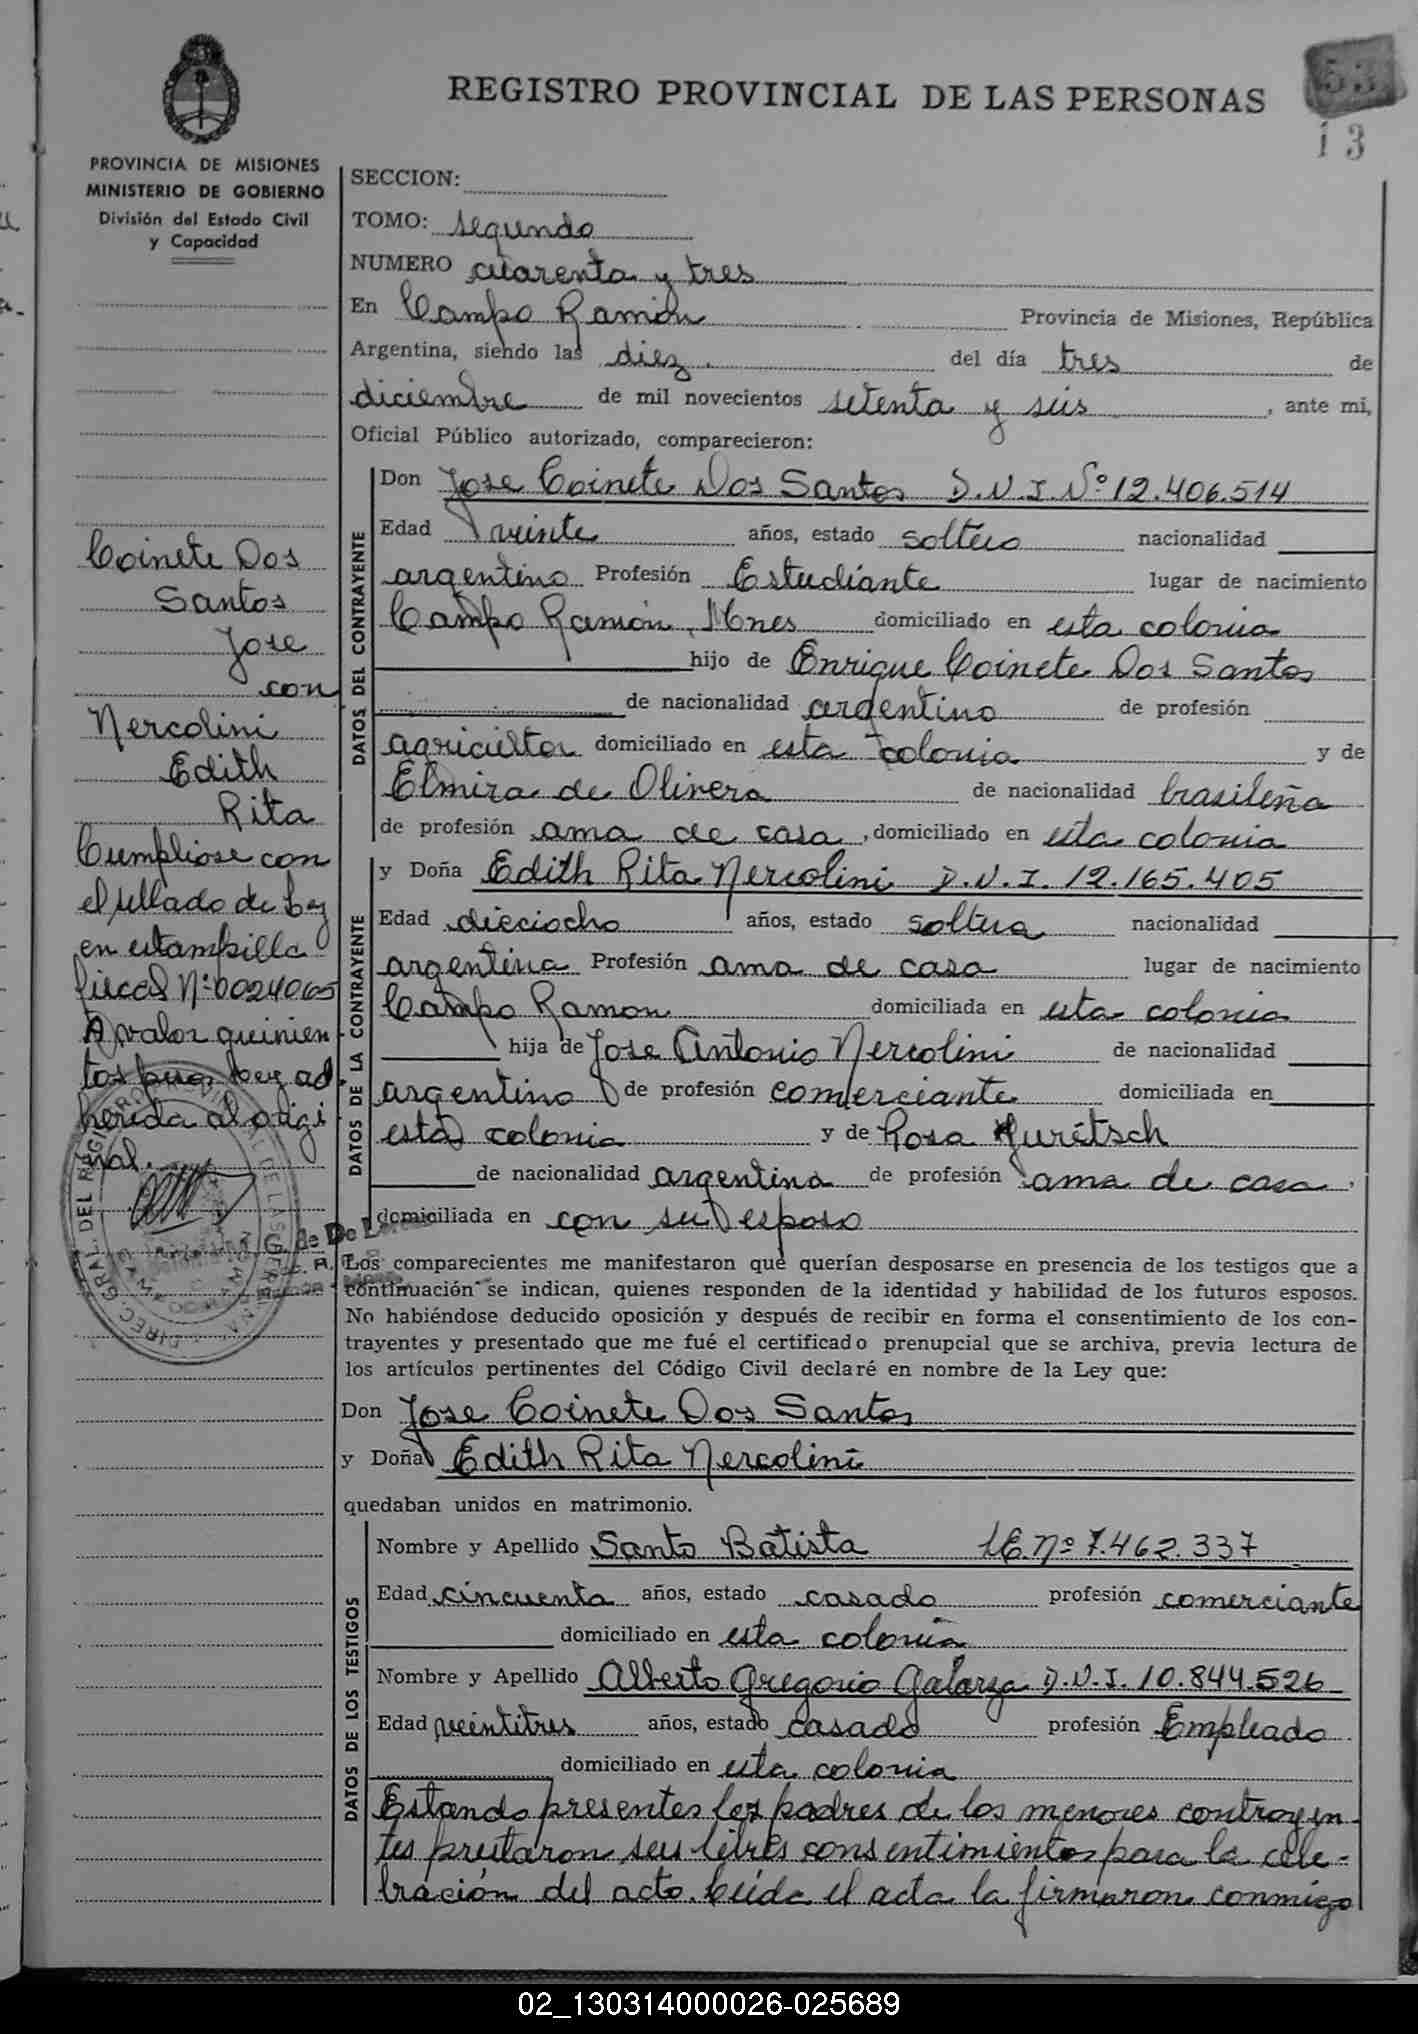 REGISTRO PROVINCIAL DE LAS PERSONAS
53
13
PROVINCIA DE MISIONES
MINISTERIO DE GOBIERNO
División del Estado Civil
y Capacidad
SECCION:
TOMO: segundo
NUMERO cuarenta y tres
En Campo Ramón Provincia de Misiones, República
Argentina, siendo las diez del día tres de
diciembre de mil novecientos setenta y seis, ante mi,
Oficial Público autorizado, comparecieron:
DATOS DEL CONTRAYENTE
Don Jose Coinete Dos Santos D.N.I. Nº 12.406.514
Edad veinte años, estado soltero nacionalidad
argentino Profesión Estudiante lugar de nacimiento
Campo Ramón, Mnes domiciliado en esta colonia
hijo de Enrique Coinete Dos Santos
de nacionalidad argentino de profesión
agricultor domiciliado en esta colonia y de
Elmira de Olivera de nacionalidad brasileña
de profesión ama de casa, domiciliado en esta colonia
DATOS DE LA CONTRAYENTE
y Doña Edith Rita Nercolini D.N.I. 12.165.405
Edad dieciocho años, estado soltera nacionalidad
argentina Profesión ama de casa lugar de nacimiento
Campo Ramon domiciliada en esta colonia
hija de Jose Antonio Nercolini de nacionalidad
argentino de profesión comerciante domiciliada en
esta colonia y de Rosa
de nacionalidad argentina de profesión ama de casa
domiciliada en con su esposo
Coinete Dos
Santos
Jose
con
Nercolini
Edith
Rita
Cumpliose con
el sellado de Ley
en estampilla
fiscal Nº 0024065
valor quinien
tos
herida al origi
nal.
DIREC. GRAL. DEL REGISTRO PROVINCIAL DE LAS PERSONAS
de De
Los comparecientes me manifestaron que querían desposarse en presencia de los testigos que a
continuación se indican, quienes responden de la identidad y habilidad de los futuros esposos.
No habiéndose deducido oposición y después de recibir en forma el consentimiento de los con-
trayentes y presentado que me fué el certificado prenupcial que se archiva, previa lectura de
los artículos pertinentes del Código Civil declaré en nombre de la Ley que:
Don Jose Coinete Dos Santos
y Doña Edith Rita Nercolini
quedaban unidos en matrimonio.
DATOS DE LOS TESTIGOS
Nombre y Apellido Santo Batista LE. Nº 7.462.337
Edad cincuenta años, estado casado profesión comerciante
domiciliado en esta colonia
Nombre y Apellido Alberto Gregorio Galarza D.N.I. 10.844.526
Edad veintitres años, estado casado profesión Empleado
domiciliado en esta colonia
Estando presentes los padres de los menores contrayen-
tes prestaron sus libres consentimientos para la cele-
bración del acto. Leída el acta la firmaron conmigo
02_130314000026-025689